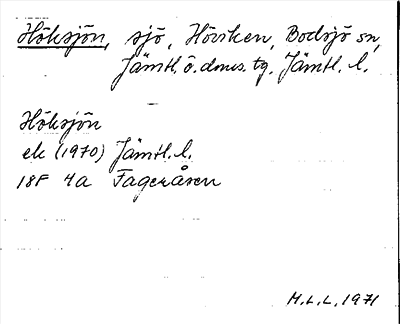 Höksjön, sjö, Höviken, Bodsjö sn,
Jämtl. ö. dmns. tg. Jämtl. l.
Höksjön
ek (1970) Jämtl. l.
18F 4a Fageråsen
M.L.L., 1971